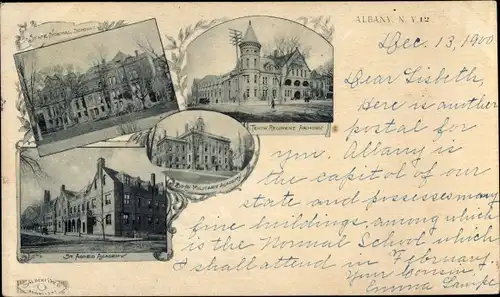 STATE NORMAL SCHOOL
ALBANY, N. Y.
Dec. 13, 1900
Dear Lisbeth,
Here is another
postal for
you. Albany is
the capitol of our
state and possesses many
fine buildings, among which
is the Normal School which
I shall attend in February.
Your Cousin,
Emma
TENTH REGIMENT ARMORY
BOYS MILITARY ACADEMY
ST. AGNES ACADEMY